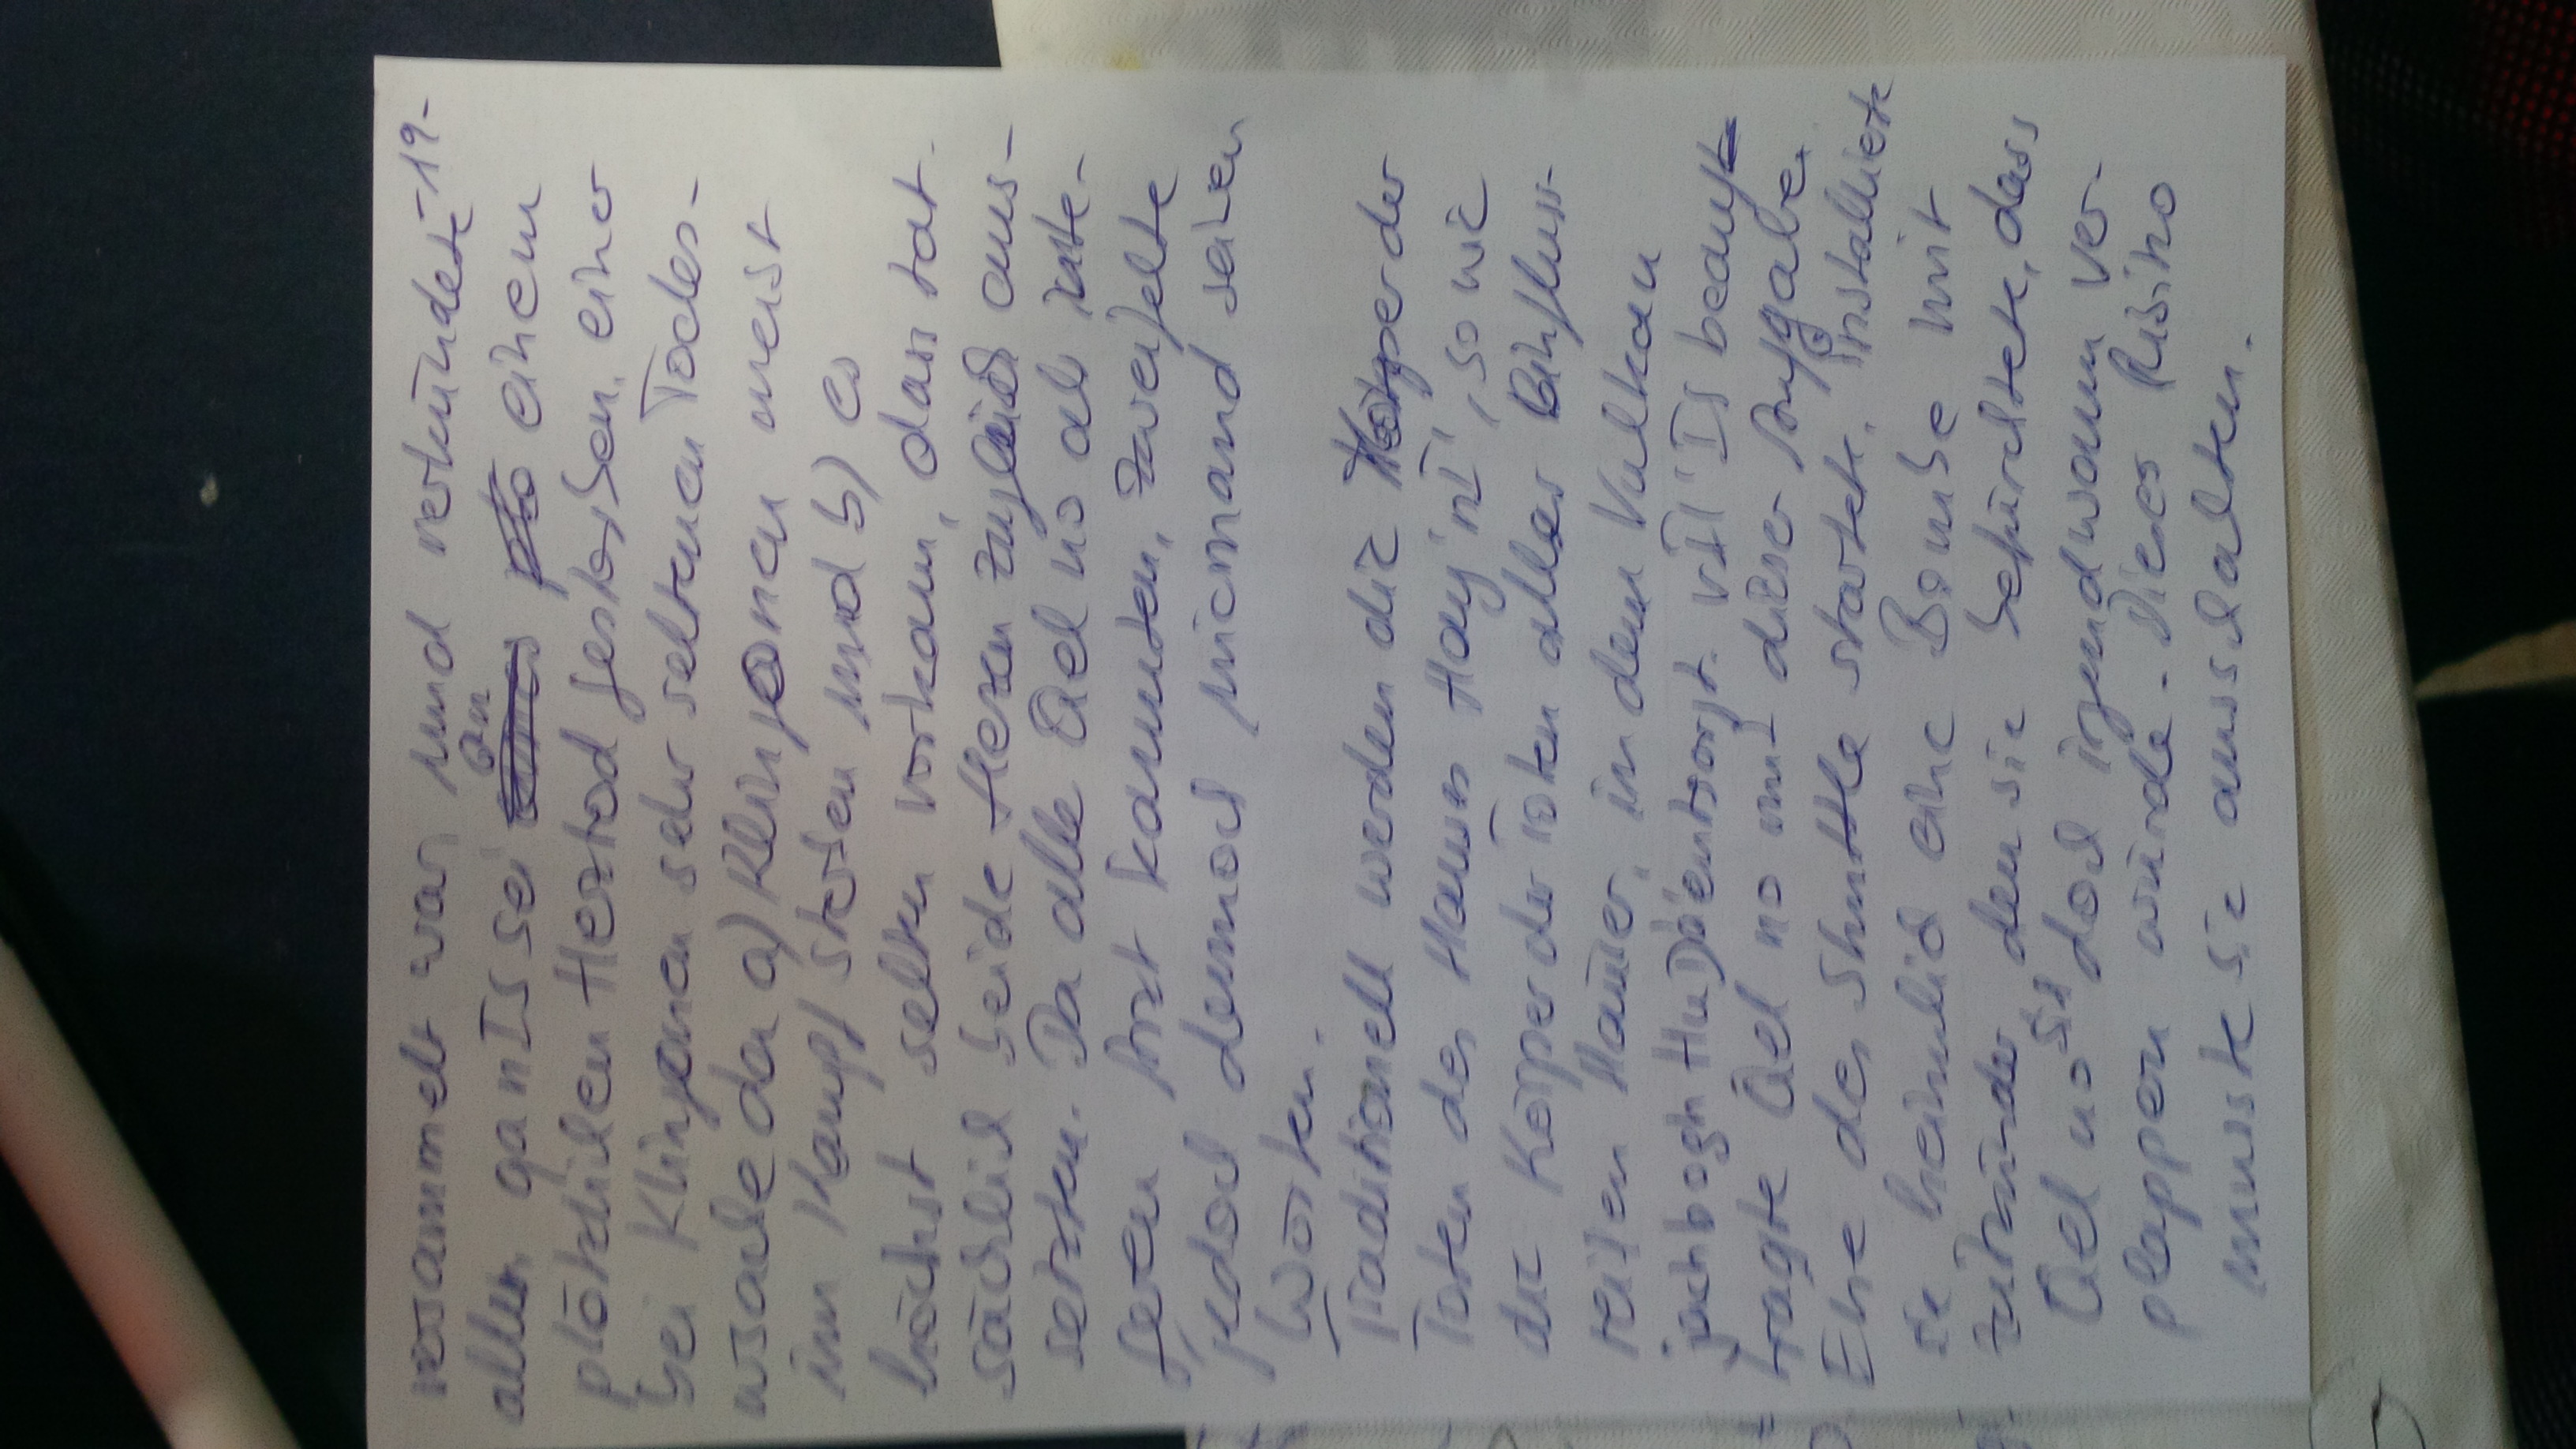 versammelt war und verkündete -19-
allen qanIs sei an einem
plötzlichen Herztod gestorben, einer
bei Klingonen sehr seltenen Todes-
ursache da a) Klingonen meist
im Kampf sterben und b) es
höchst selten vorkam, dass tat-
sächlich beide Herzen zugleich aus-
setzten. Da alle Qel no als inte-
geren Arzt kannten, zweifelte
jedoch dennoch niemand seinen
Worten.
Traditionell werden die Körper der
Toten des Hauses, so wie
die Körper der Toten aller einfluss-
reichen Häuser, in dem Vulkan
entsorgt. beauf-
tragte Qel no mit dieser Aufgabe.
Ehe das Shuttle startet, installierte
sie heimlich eine Bombe mit
Zeitzünder den sie befürchtete, dass
Qel no sich doch irgendwann ver-
plappern würde. Dieses Risiko
musste sie ausschalten.